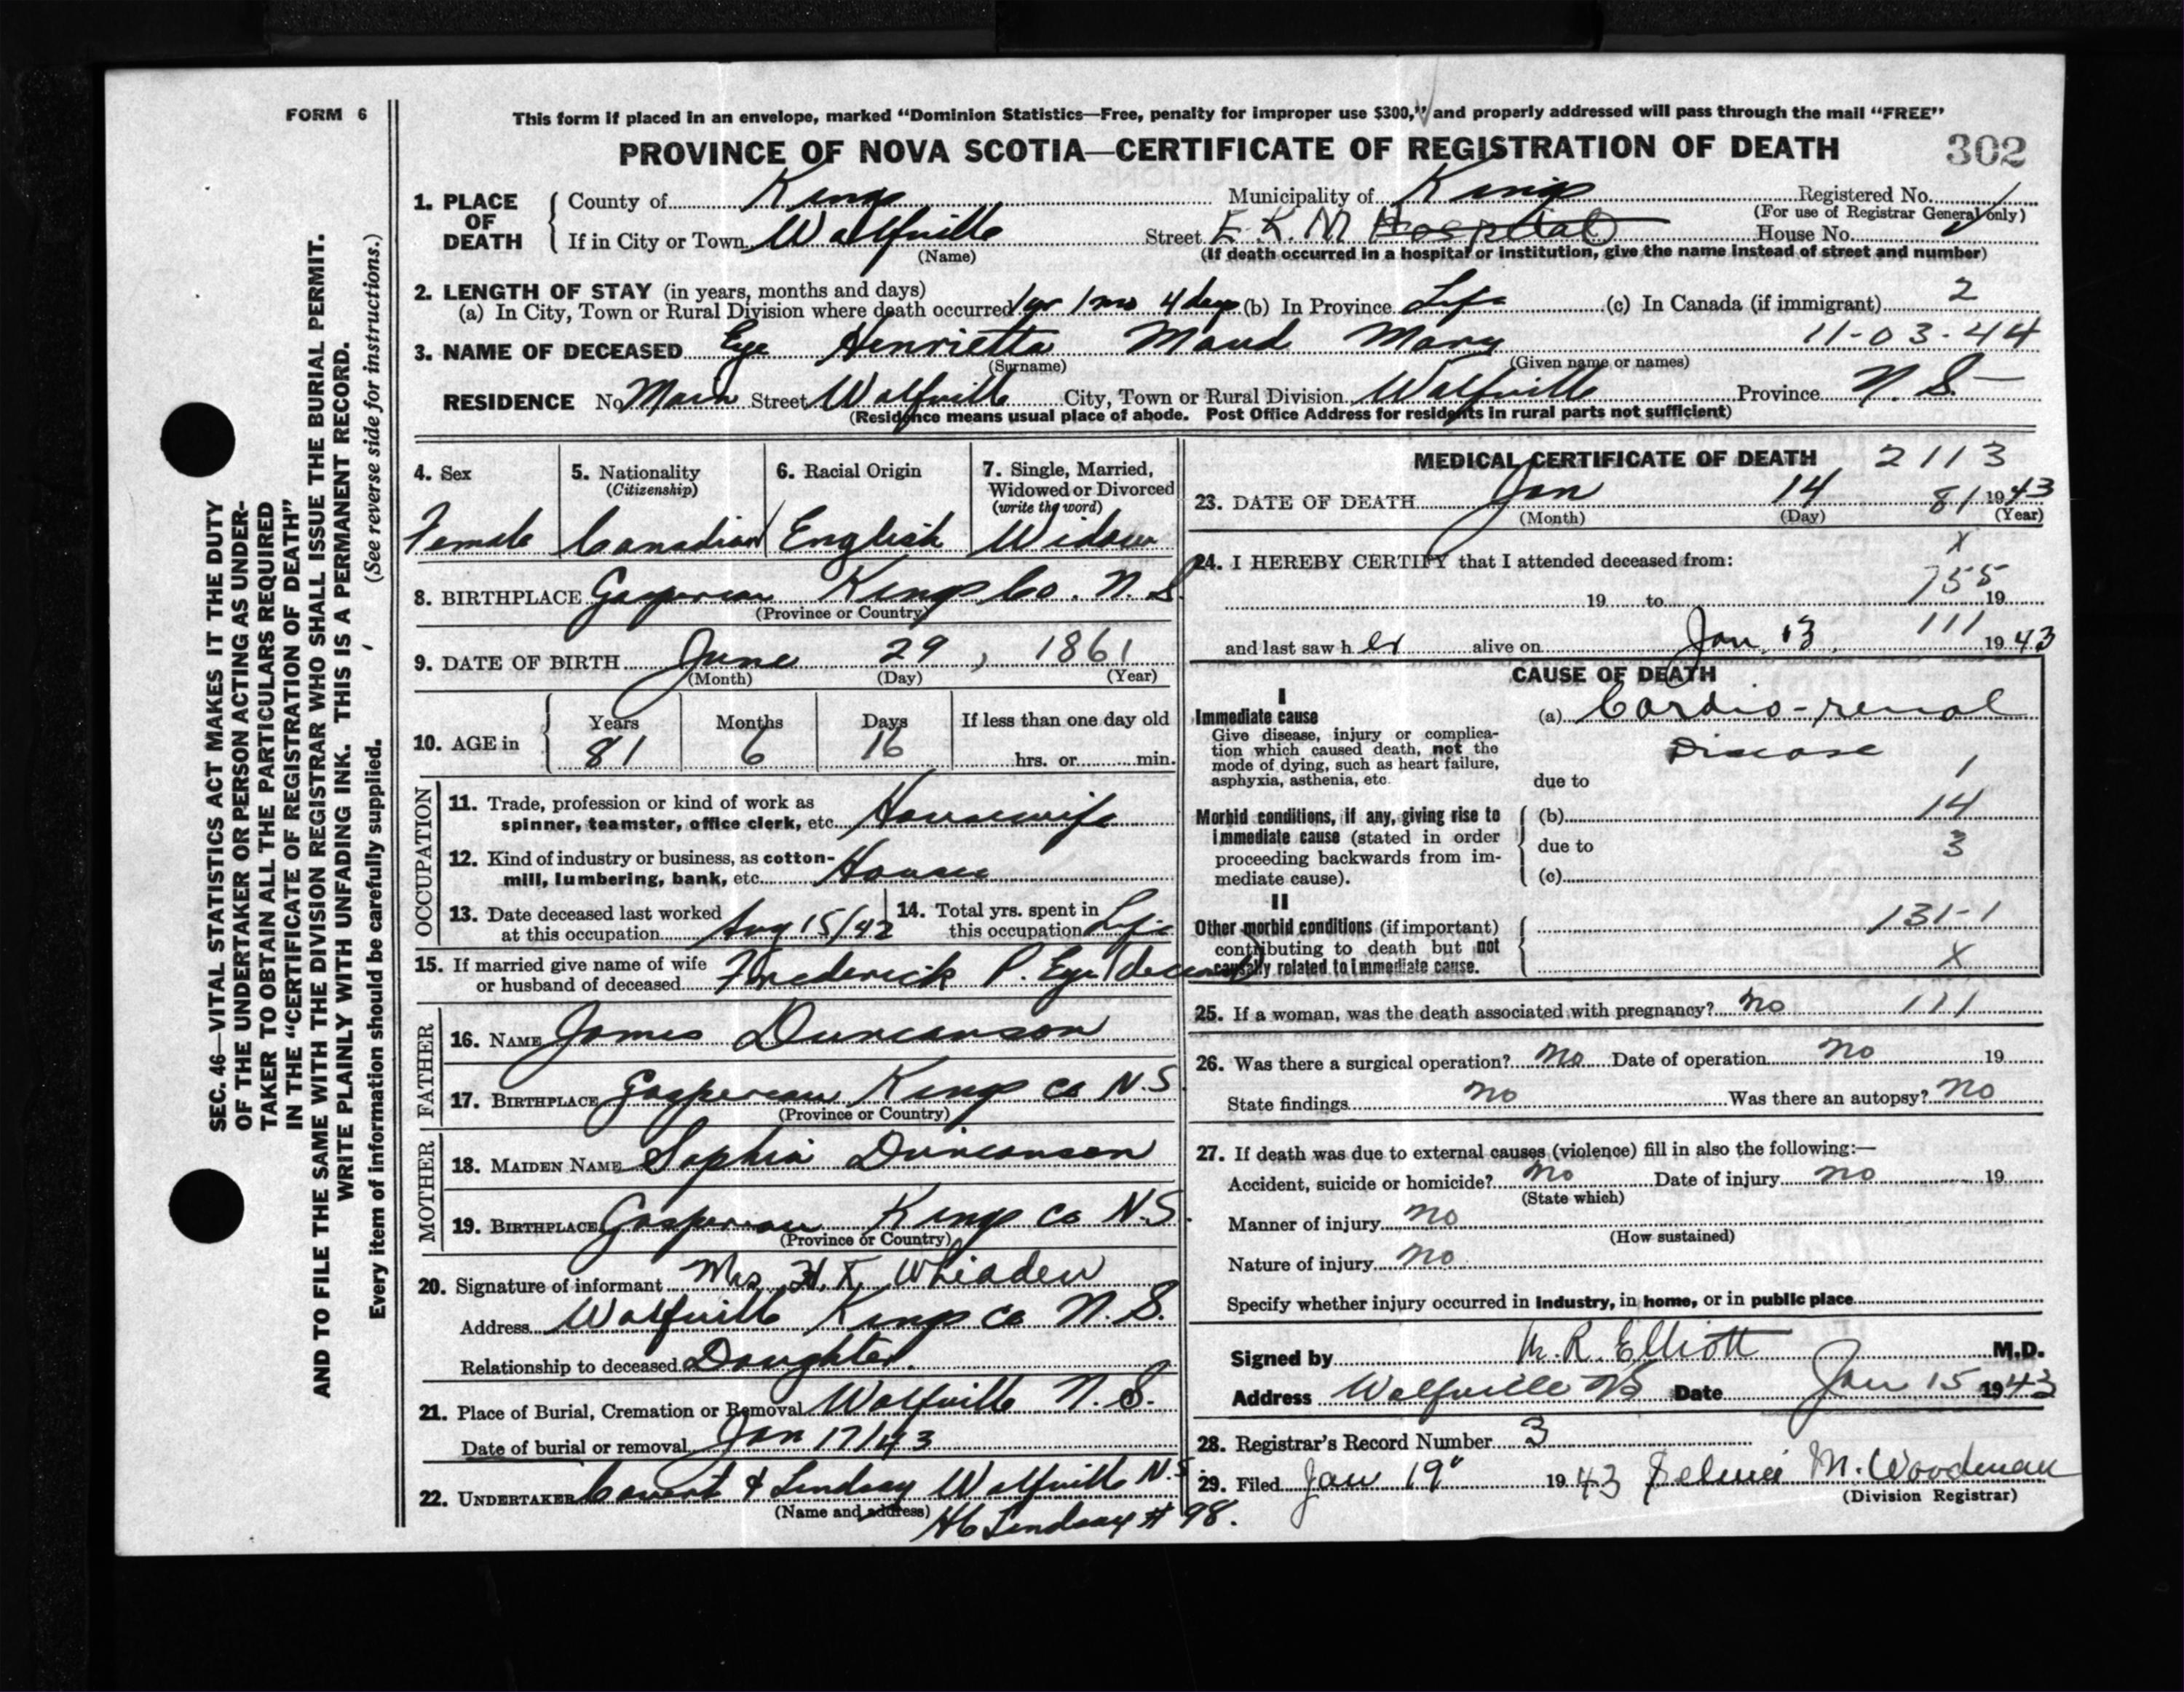 FORM 6
This form if placed in an envelope, marked “Dominion Statistics—Free, penalty for improper use $300,” and properly addressed will pass through the mail “FREE”
PROVINCE OF NOVA SCOTIA—CERTIFICATE OF REGISTRATION OF DEATH 302
1. PLACE OF DEATH County of Kings Municipality of Kings Registered No.
(For use of Registrar General only)
If in City or Town Wolfville Street E. K. M Hospital House No.
(Name) (If death occurred in a hospital or institution, give the name instead of street and number)
2. LENGTH OF STAY (in years, months and days)
(a) In City, Town or Rural Division where death occurred 1 yr 1 mo 4 days (b) In Province Life (c) In Canada (if immigrant) 2
3. NAME OF DECEASED Eye Henrietta Maud Mary 11-03-44
(Surname) (Given name or names)
RESIDENCE No Main Street Wolfville City, Town or Rural Division Wolfville Province N. S.
(Residence means usual place of abode. Post Office Address for residents in rural parts not sufficient)
4. Sex 5. Nationality 6. Racial Origin 7. Single, Married,
(Citizenship) Widowed or Divorced
(write the word)
Female Canadian English Widow
8. BIRTHPLACE Gaspereau Kings Co. N. S.
(Province or Country)
9. DATE OF BIRTH June 29, 1861
(Month) (Day) (Year)
10. AGE in Years Months Days If less than one day old
81 6 16 hrs. or min.
OCCUPATION
11. Trade, profession or kind of work as
spinner, teamster, office clerk, etc. Housewife
12. Kind of industry or business, as cotton-
mill, lumbering, bank, etc. House
13. Date deceased last worked 14. Total yrs. spent in
at this occupation Aug 15/42 this occupation Life
15. If married give name of wife
or husband of deceased Frederick P. Eye (deceased)
FATHER
16. NAME James Duncanson
17. BIRTHPLACE Gaspereau Kings Co N.S
(Province or Country)
MOTHER
18. MAIDEN NAME Sophia Duncanson
19. BIRTHPLACE Gaspereau Kings Co N.S.
(Province or Country)
20. Signature of informant Mrs H. T.
Address Wolfville Kings Co N. S.
Relationship to deceased Daughter.
21. Place of Burial, Cremation or Removal Wolfville N. S.
Date of burial or removal Jan 17/43
22. UNDERTAKER & Lindsay Wolfville N.S.
(Name and address) Lindsay # 98.
MEDICAL CERTIFICATE OF DEATH 2113
23. DATE OF DEATH Jan 14 81 1943
(Month) (Day) (Year)
24. I HEREBY CERTIFY that I attended deceased from: x
19 to 19 755
and last saw h er alive on Jan. 13, 1943 111
CAUSE OF DEATH
I
Immediate cause (a) Cardio-renal
Give disease, injury or complica- Disease
tion which caused death, not the
mode of dying, such as heart failure,
asphyxia, asthenia, etc. due to 1
Morbid conditions, if any, giving rise to (b) 14
immediate cause (stated in order due to 3
proceeding backwards from im-
mediate cause). (c)
II
Other morbid conditions (if important) 131-1
contributing to death but not
causally related to immediate cause. X
25. If a woman, was the death associated with pregnancy? no 111
26. Was there a surgical operation? no Date of operation no 19
State findings no Was there an autopsy? no
27. If death was due to external causes (violence) fill in also the following:—
Accident, suicide or homicide? no Date of injury no 19
(State which)
Manner of injury no
(How sustained)
Nature of injury no
Specify whether injury occurred in industry, in home, or in public place
Signed by M. R. Elliott M.D.
Address Wolfville NS Date Jan 15 1943
28. Registrar’s Record Number 3
29. Filed Jan 19" 1943 M. Woodman
(Division Registrar)
SEC. 46—VITAL STATISTICS ACT MAKES IT THE DUTY
OF THE UNDERTAKER OR PERSON ACTING AS UNDER-
TAKER TO OBTAIN ALL THE PARTICULARS REQUIRED
IN THE “CERTIFICATE OF REGISTRATION OF DEATH”
AND TO FILE THE SAME WITH THE DIVISION REGISTRAR WHO SHALL ISSUE THE BURIAL PERMIT.
WRITE PLAINLY WITH UNFADING INK. THIS IS A PERMANENT RECORD.
Every item of information should be carefully supplied. (See reverse side for instructions.)